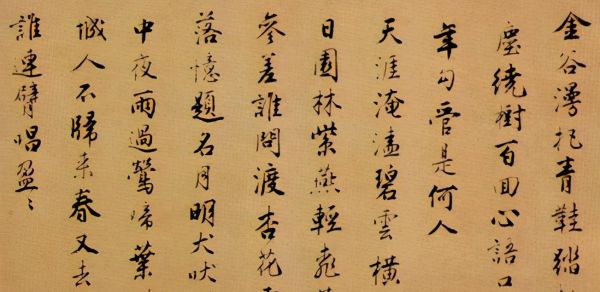 金谷漫把青鞋踏
塵繞樹百回心語口
年勾管是何人
天涯淹溘碧雲橫
日園林紫燕輕飛
參差誰問渡杏花
落憶題名月明犬吠
中夜雨過鶯啼葉
城人不歸來春又去
誰連臂唱盈〻